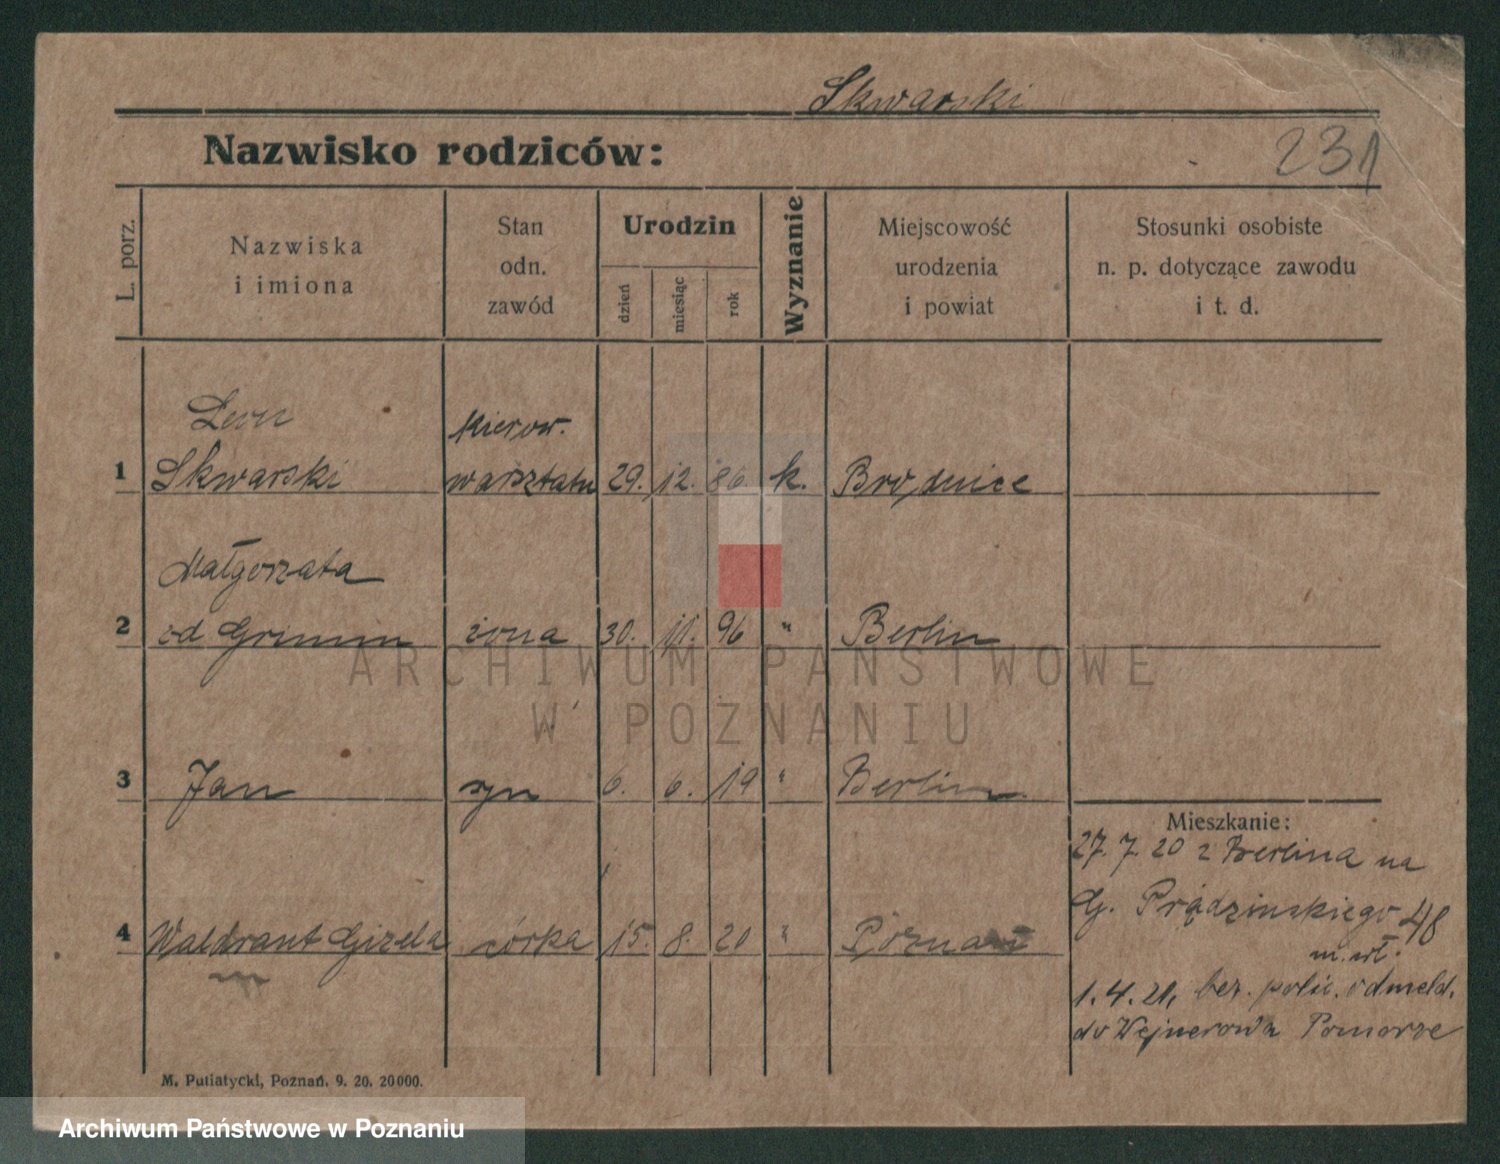 Skwarski
Nazwisko rodziców:
231
L. porz.
Nazwiska
i imiona
Stan
odn.
zawód
Urodzin
dzień
miesiąc
rok
Wyznanie
Miejscowość
urodzenia
i powiat
Stosunki osobiste
n. p. dotyczące zawodu
i t. d.
Leon kierow.
1 Skwarski warsztatu 29. 12. 86 k. Brodnice
Małgorzata
2 od Grimm żona 30. 11. 96 " Berlin
3 Jan syn 6. 6. 19 " Berlin
Mieszkanie:
27. 7. 20 z Berlina na
G. Prądzinskiego 48
4 Waldraut Gizela córka 15. 8. 20 " Poznań
m. wł.
1. 4. 21, bez. polic. odmeld.
do Wejherowa Pomorze
M. Putiatycki, Poznań. 9. 20. 20000.
ARCHIWUM PAŃSTWOWE
W POZNANIU
Archiwum Państwowe w Poznaniu